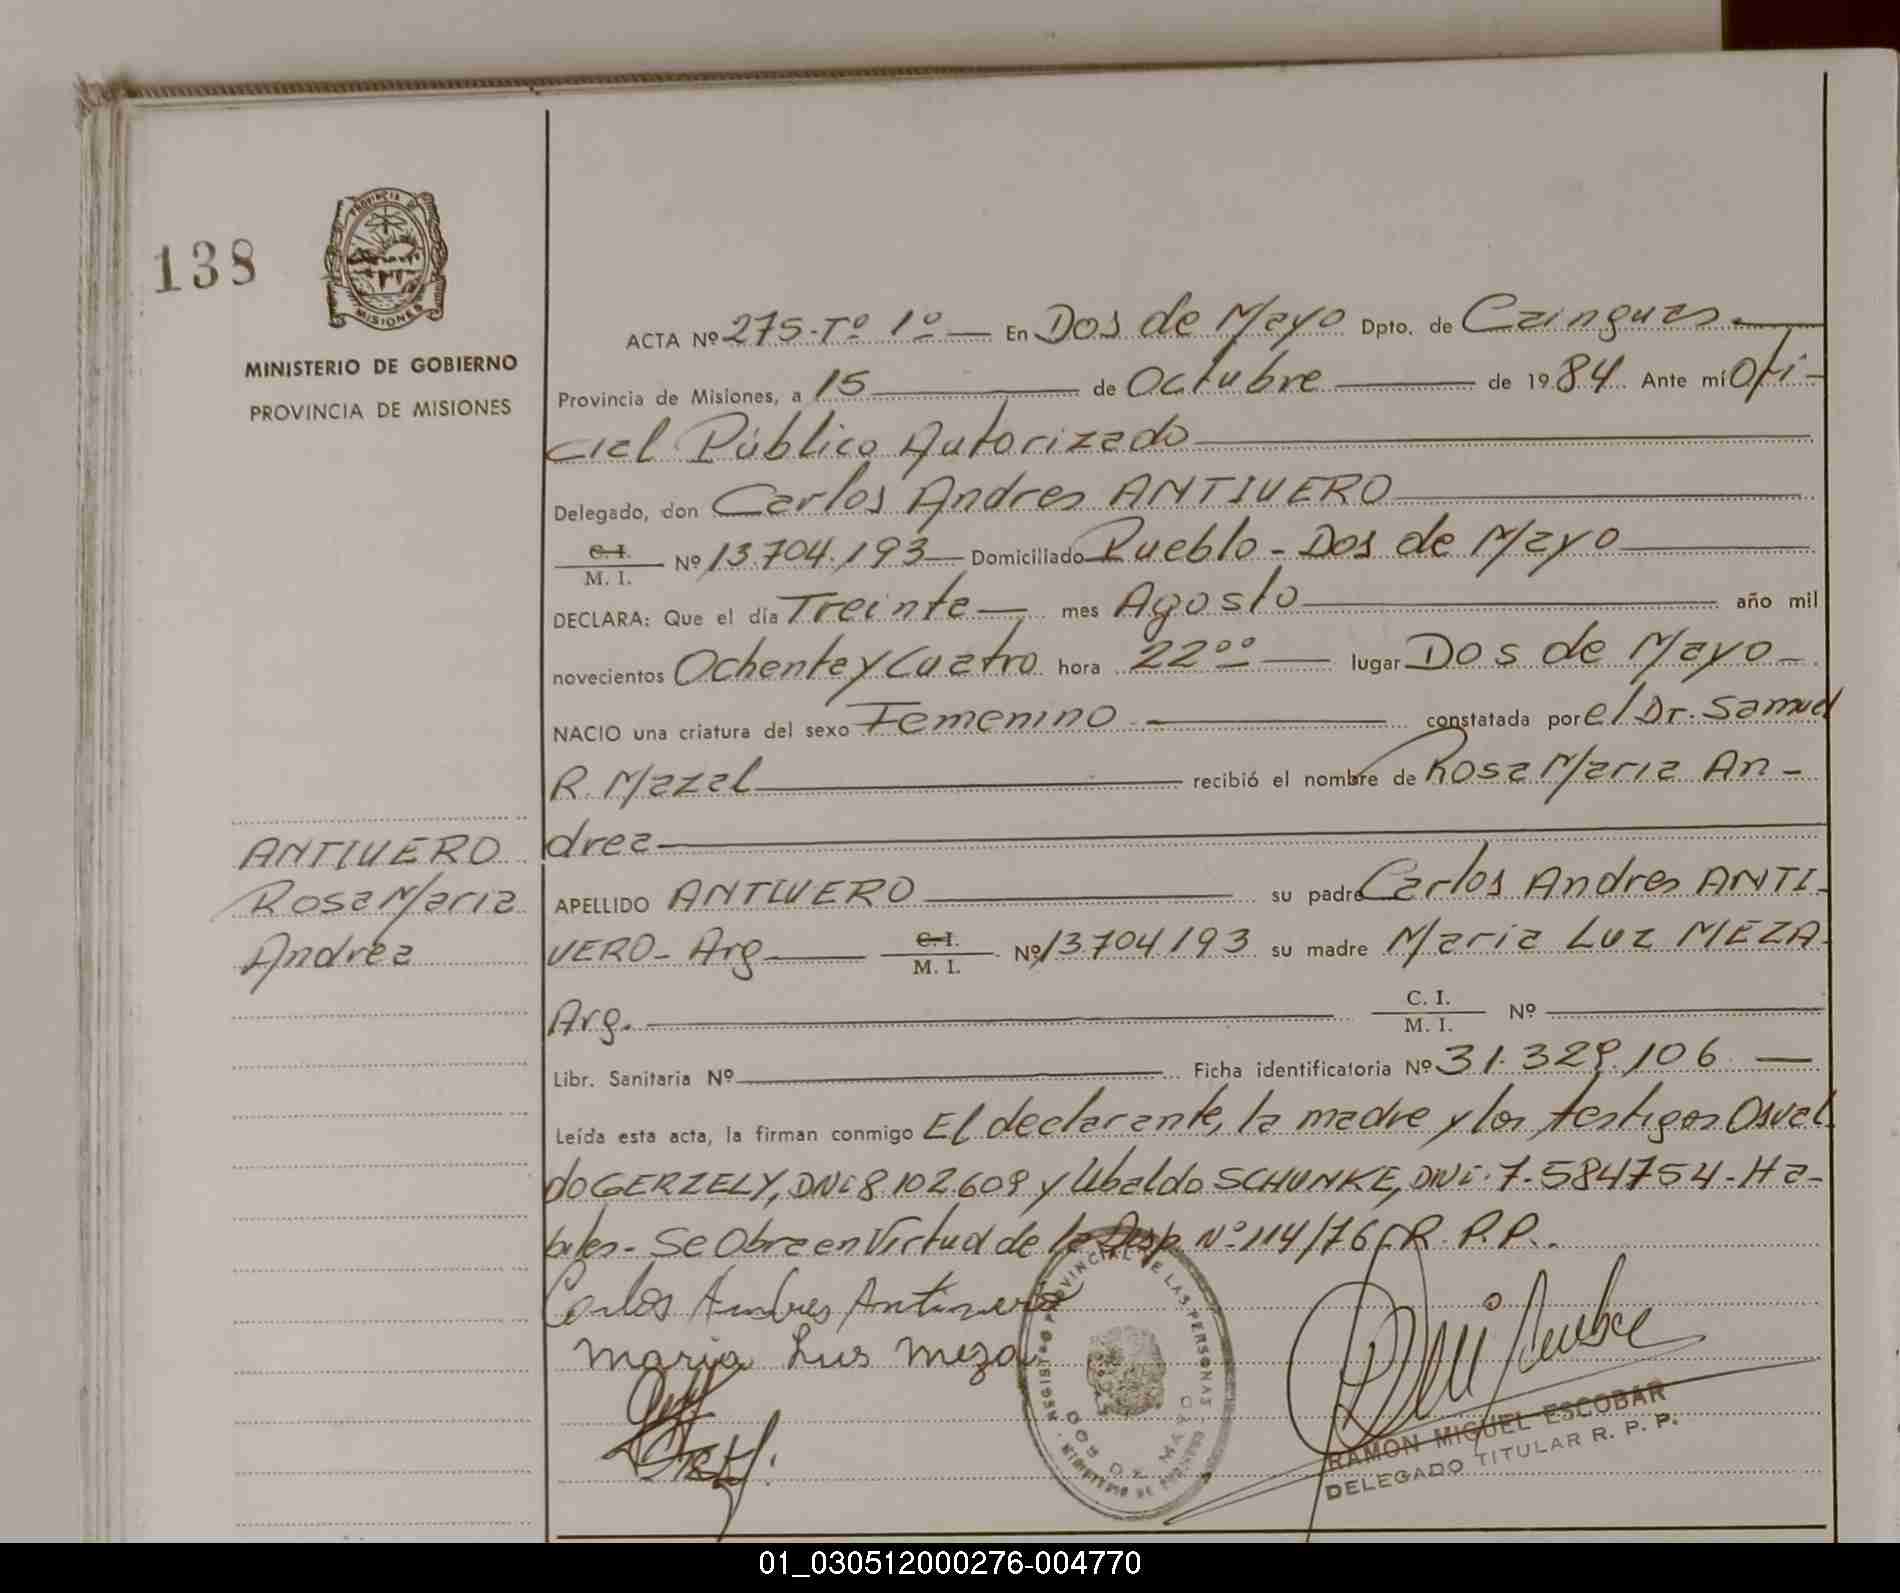 138
PROVINCIA DE
MISIONES
MINISTERIO DE GOBIERNO
PROVINCIA DE MISIONES
ACTA Nº 275-Tº 1º — En Dos de Mayo Dpto. de Cainguas.—
Provincia de Misiones, a 15 — de Octubre — de 1984 Ante mí Ofi-
cial Público Autorizado —
Delegado, don Carlos Andres ANTIVERO —
C. I.
M. I. Nº 13.704.193 — Domiciliado Pueblo - Dos de Mayo —
DECLARA: Que el día Treinta — mes Agosto — año mil
novecientos Ochenta y Cuatro hora 22ºº — lugar Dos de Mayo —
NACIO una criatura del sexo Femenino — constatada por el Dr. Samuel
R. Mazal — recibió el nombre de Rosa Maria An-
drea —
ANTIVERO
Rosa Maria
Andrea
APELLIDO ANTIVERO — su padre Carlos Andres ANTI-
VERO - Arg — C. I. / M. I. Nº 13704193 su madre Maria Luz MEZA -
Arg. — C. I. / M. I. Nº —
Libr. Sanitaria Nº — Ficha identificatoria Nº 31.329.106 —
Leída esta acta, la firman conmigo El declarante, la madre y los testigos Osval
do GERZELY, DNi 8.102.609 y Ubaldo SCHUNKE, DNi. 7.584754 - Ha-
biles - Se Obra en Virtud de la Disp. Nº 114/76 R. P. P..
Carlos Andres Antivero
Maria Lus Meza
REGISTRO PROVINCIAL DE LAS PERSONAS
DOS DE MAYO
MINISTERIO DE GOBIERNO
RAMON MIGUEL ESCOBAR
DELEGADO TITULAR R. P. P.
01_030512000276-004770